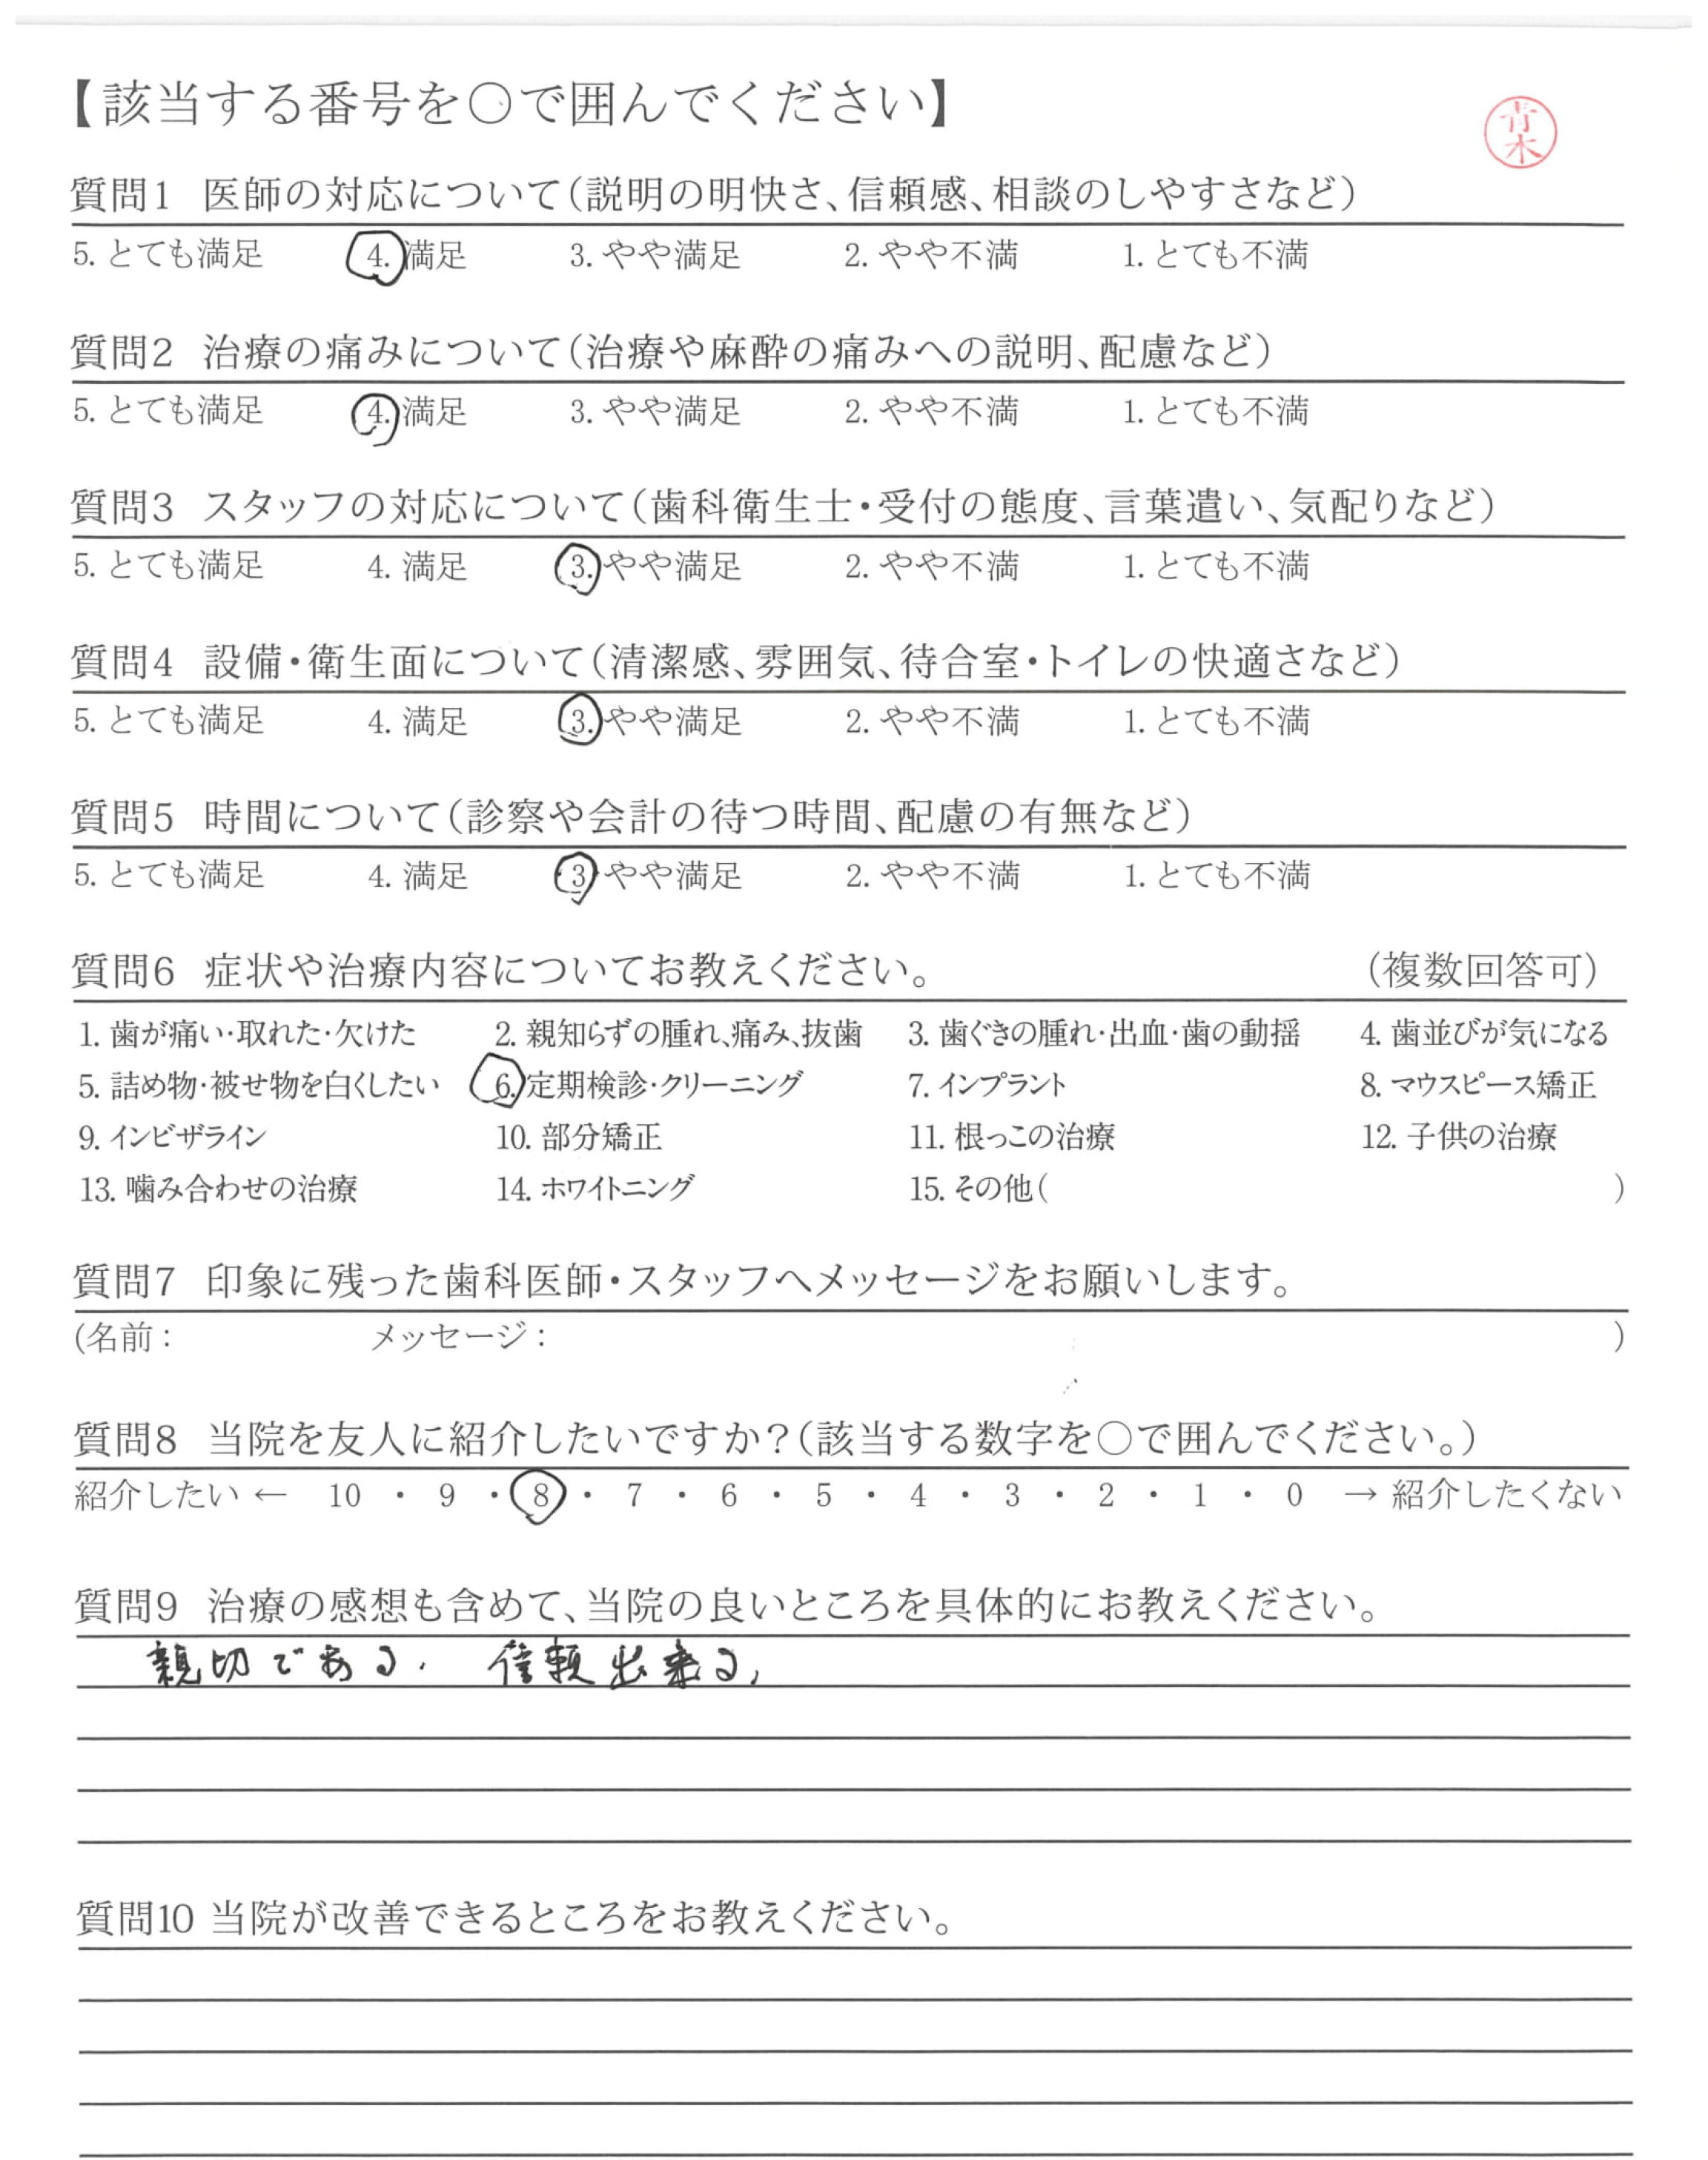 【該当する番号を○で囲んでください】
青木
質問1 医師の対応について(説明の明快さ、信頼感、相談のしやすさなど)
5. とても満足 4. 満足 3. やや満足 2. やや不満 1. とても不満
質問2 治療の痛みについて(治療や麻酔の痛みへの説明、配慮など)
5. とても満足 4. 満足 3. やや満足 2. やや不満 1. とても不満
質問3 スタッフの対応について(歯科衛生士・受付の態度、言葉遣い、気配りなど)
5. とても満足 4. 満足 3. やや満足 2. やや不満 1. とても不満
質問4 設備・衛生面について(清潔感、雰囲気、待合室・トイレの快適さなど)
5. とても満足 4. 満足 3. やや満足 2. やや不満 1. とても不満
質問5 時間について(診察や会計の待つ時間、配慮の有無など)
5. とても満足 4. 満足 3. やや満足 2. やや不満 1. とても不満
質問6 症状や治療内容についてお教えください。 (複数回答可)
1. 歯が痛い・取れた・欠けた 2. 親知らずの腫れ、痛み、抜歯 3. 歯ぐきの腫れ・出血・歯の動揺 4. 歯並びが気になる
5. 詰め物・被せ物を白くしたい 6. 定期検診・クリーニング 7. インプラント 8. マウスピース矯正
9. インビザライン 10. 部分矯正 11. 根っこの治療 12. 子供の治療
13. 噛み合わせの治療 14. ホワイトニング 15. その他( )
質問7 印象に残った歯科医師・スタッフへメッセージをお願いします。
(名前: メッセージ: )
質問8 当院を友人に紹介したいですか?(該当する数字を○で囲んでください。)
紹介したい ← 10 ・ 9 ・ 8 ・ 7 ・ 6 ・ 5 ・ 4 ・ 3 ・ 2 ・ 1 ・ 0 → 紹介したくない
質問9 治療の感想も含めて、当院の良いところを具体的にお教えください。
親切である. 信頼出来る、
質問10 当院が改善できるところをお教えください。